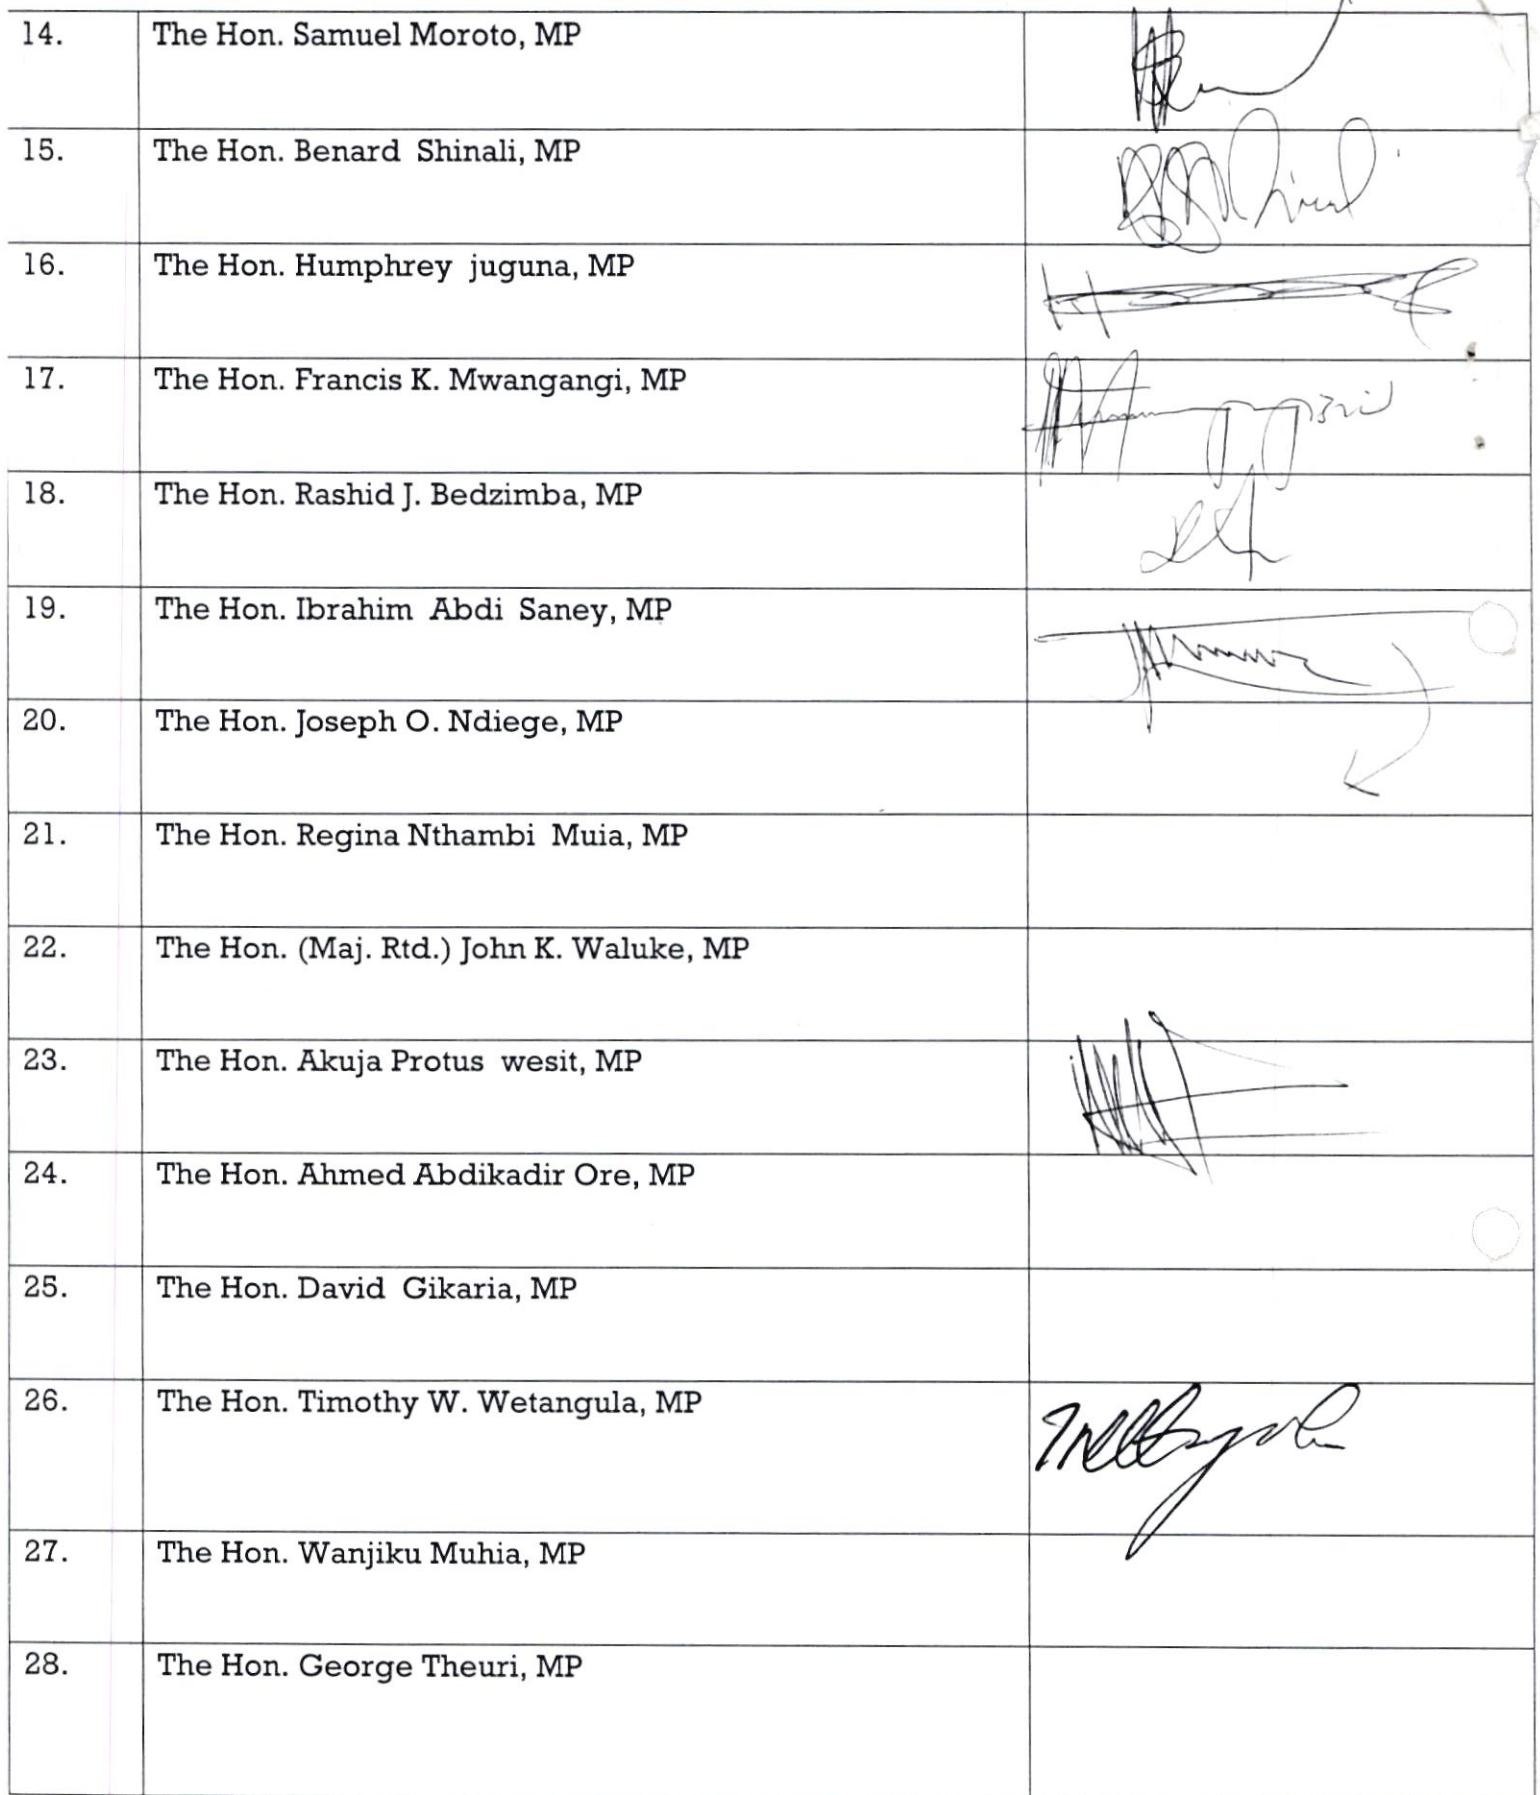 14. The Hon. Samuel Moroto, MP
15. The Hon. Benard Shinali, MP
16. The Hon. Humphrey juguna, MP
17. The Hon. Francis K. Mwangangi, MP
18. The Hon. Rashid J. Bedzimba, MP
19. The Hon. Ibrahim Abdi Saney, MP
20. The Hon. Joseph O. Ndiege, MP
21. The Hon. Regina Nthambi Muia, MP
22. The Hon. (Maj. Rtd.) John K. Waluke, MP
23. The Hon. Akuja Protus wesit, MP
24. The Hon. Ahmed Abdikadir Ore, MP
25. The Hon. David Gikaria, MP
26. The Hon. Timothy W. Wetangula, MP
27. The Hon. Wanjiku Muhia, MP
28. The Hon. George Theuri, MP